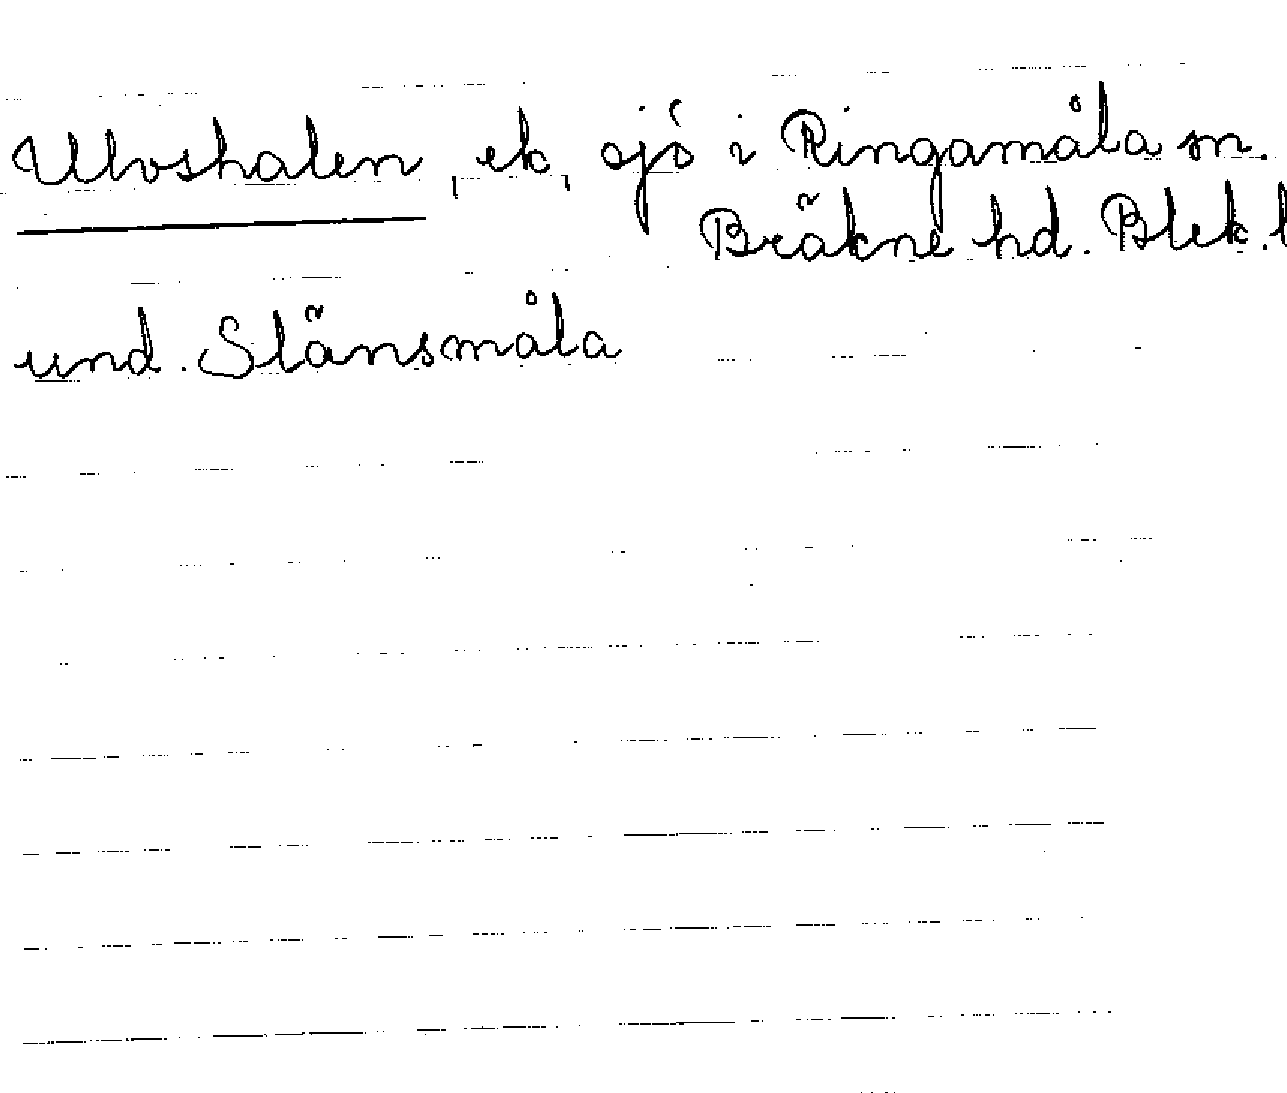 Ulvshalen, ek, sjö i Ringamåla sn.
Bräkne hd. Blek. l
und. Slänsmåla